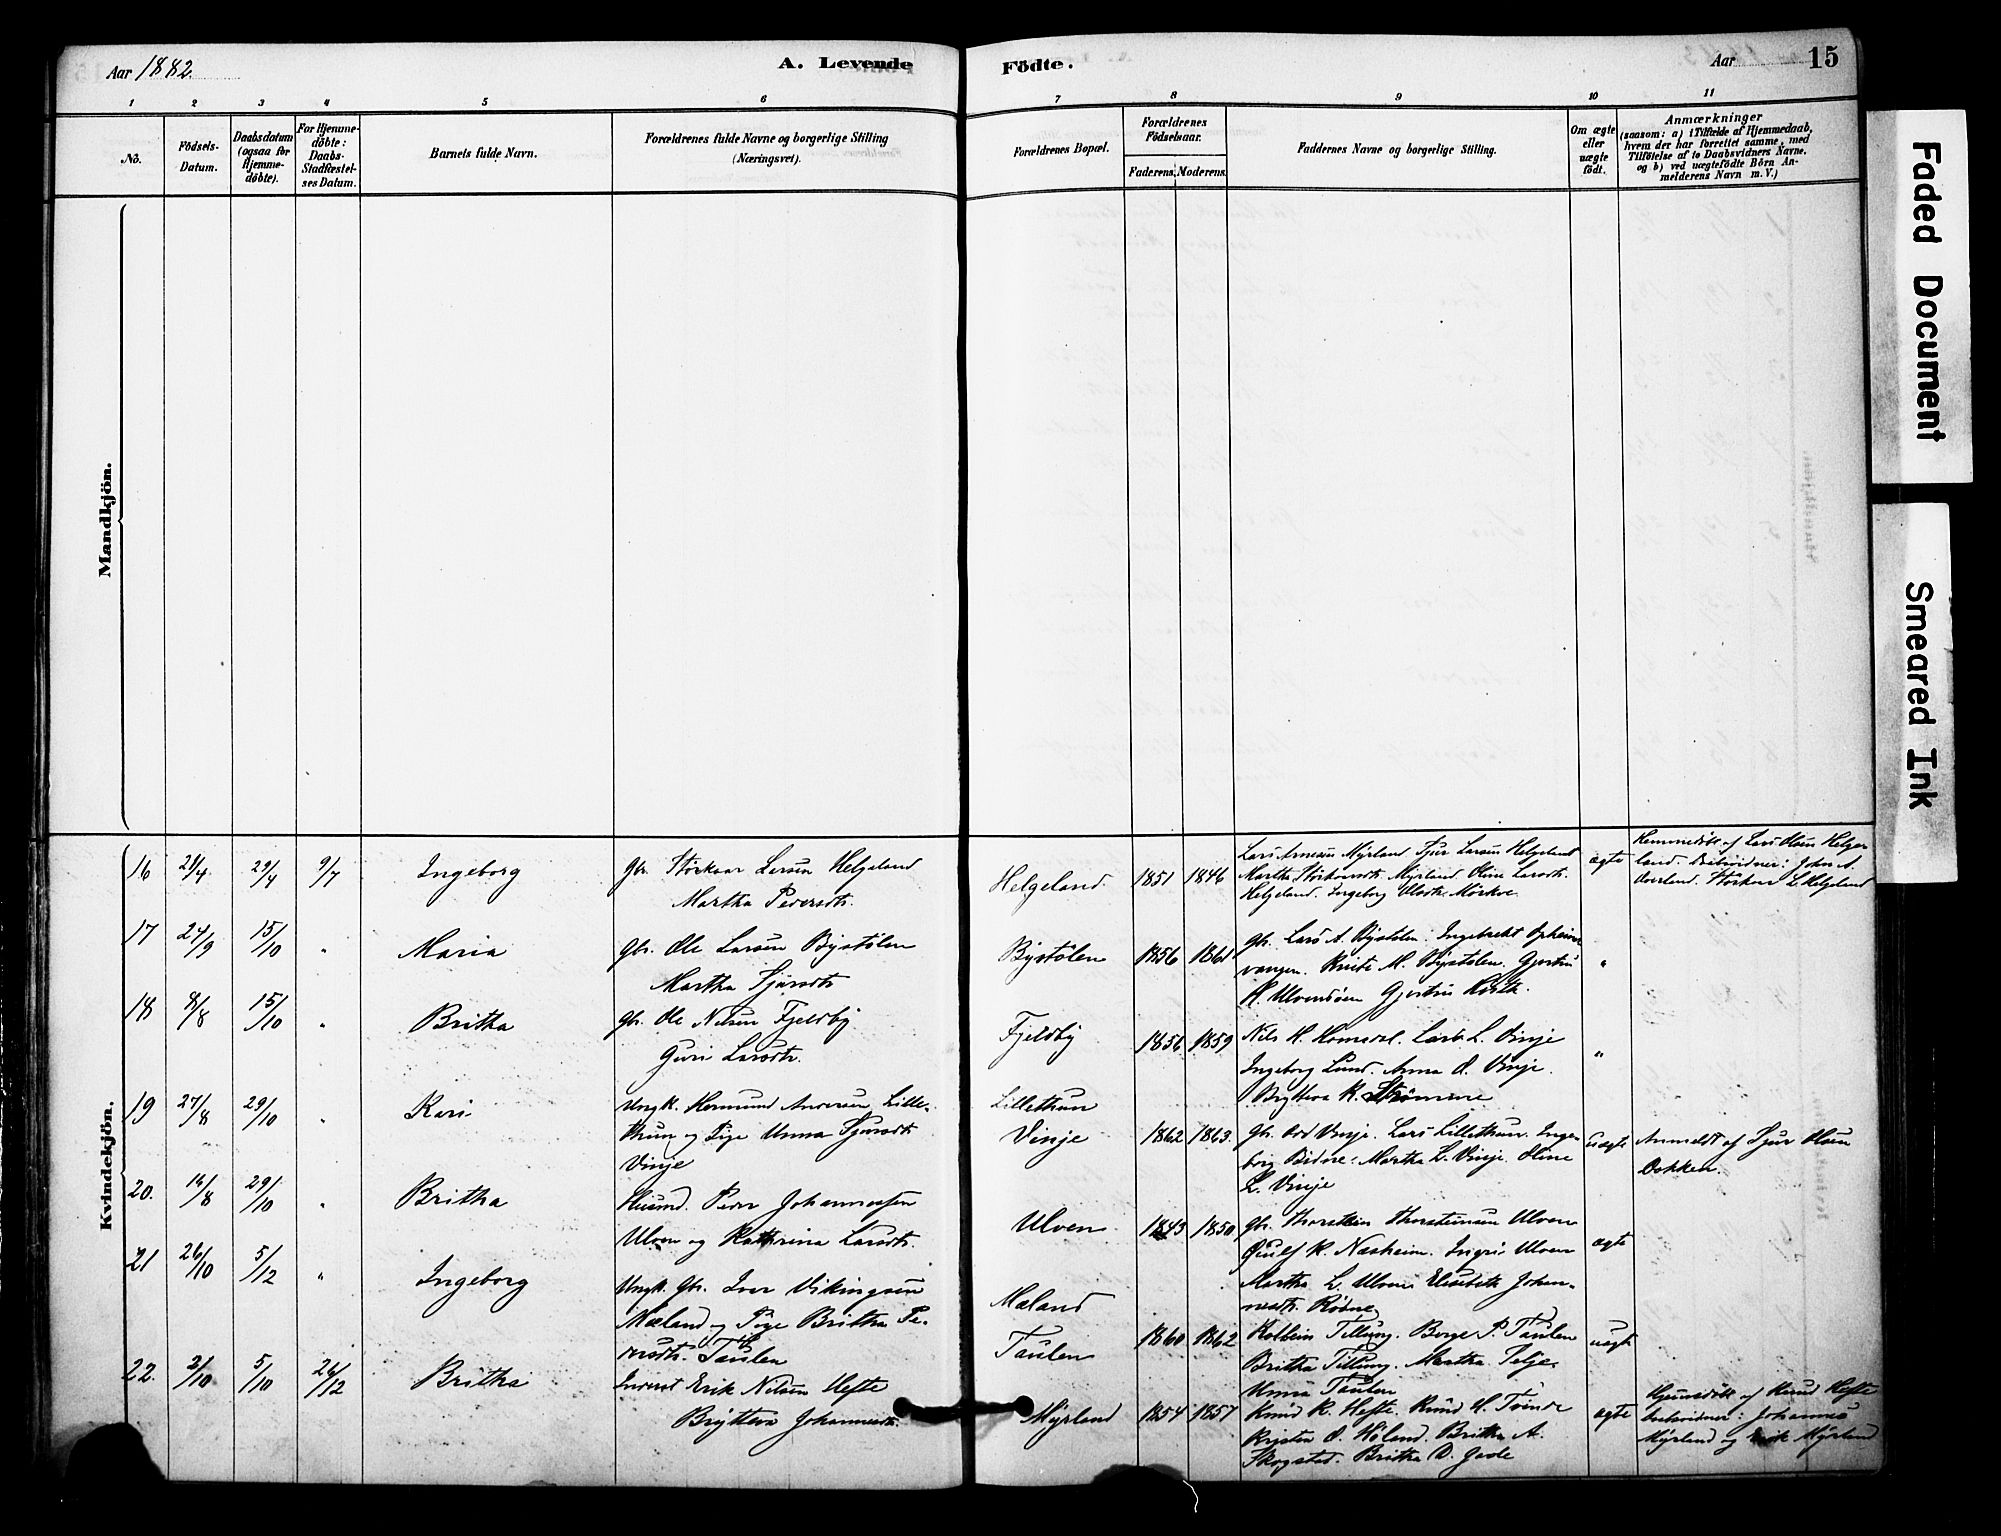 Aar 1882
A. Levende
Födte.
Aar
15
1 2 3 4 5 6 7 8 9 10 11
No.
Födsels-
Datum.
Daabsdatum
(ogsaa for
Hjemme-
döbte).
For Hjemme-
döbte:
Daabs-
Stadfæstel-
ses Datum.
Barnets fulde Navn.
Forældrenes fulde Navne og borgerlige Stilling
(Næringsvei).
Forældrenes Bopæl.
Forældrenes
Födselsaar.
Faderens. Moderens.
Faddernes Navne og borgerlige Stilling.
Om ægte
eller
uægte
födt.
Anmærkninger
(saasom: a) i Tilfælde af Hjemmedaab,
hvem der har forrettet samme, med
Tilföielse af to Daabsvidners Navne.
og b) ved uægtefödte Börn An-
melderens Navn m. V.)
Mandkjön.
Kvindekjön.
16 29/4 9/7 Ingeborg
Gbr. Störkaar Larsen Helgeland
Martha Pedersdtr.
Helgeland 1851 1846
Lars Arnesen Myrland Sjur Larsen Helgeland
Martha Myrland Oline Larsdtr.
Helgeland. Ingeborg
ægte
Hemmedöbt af Lars Olsen Helge
land.
Störkaar L. Helgeland
17 24/9 15/10 " Maria
Gbr. Ole Larsen Bystölen
Martha Sjursdtr
Bystölen 1856 1861
Gbr. Lars A. Bystölen. Ingebrekt Opheims
vangen. M. Bystölen. Gjertru
"
18 8/8 15/10 " Britha
Gbr. Ole Nilsen Fjeldby
Guri Larsdtr.
Fjeldby 1856 1859
Nils H. Lars L. Vinje
Ingeborg Lund. Anna O. Vinje.
Brytteva K.
"
19 27/8 29/10 " Kari
Ungk. Hermund Andersen Lille-
thun og Pige Unna Sjursdtr
Vinje
Lillethun
Vinje 1862 1863.
Gbr. Odd Vinje. Lars Lillethun. Inge-
borg Martha L. Vinje. Oline
L. Vinje
uægte
Anmeldt af Sjur Olsen
Dokken.
20. 16/8 29/10 " Britha
Husmd. Peder Johannessen
Ulven og Kathrina Larsdtr.
Ulven 1843 1850
Gbr. Thorstein Thorsteinsen Ulven
K. Næsheim. Ingri Ulven
Martha L. Ulven Elisabeth Johan-
nesdtr. Rödne
ægte
21 26/10 5/12 " Ingeborg
Ungk. Gbr. Iver Vikingsen
Mæland og Pige Britha Pe-
dersdtr. Taulen
Mæland
Taulen 1860 1862
Kolbein Tillung. Börge P. Taulen
Britha Tillung. Martha
Unna Taulen
uægte
22. 3/10 5/10 26/12 Britha
Inderst Erik Nilsen Hefte
Brytteva Johannesdtr.
Myrland 1854 1857
Knud K. Hefte. Knud H. Tvinde
Kristen O. Britha A.
Skogstad. Britha D. Gade
ægte
Hjemmedöbt af Knud Hefte
Johannes
Myrland og Erik Myrland
Faded Document
Smeared Ink